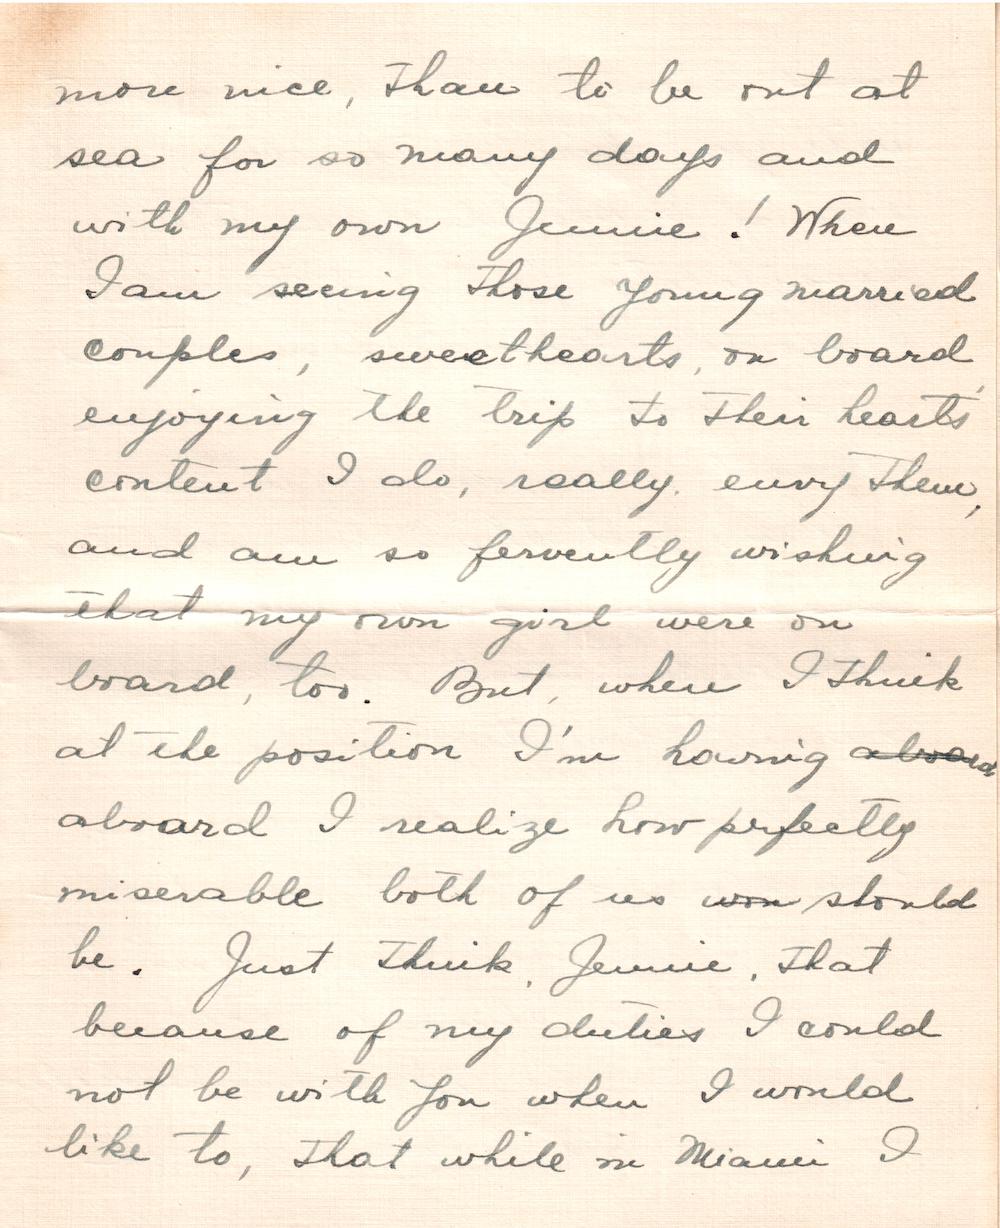 more nice, than to be out at
sea for so many days and
with my own Jennie! When
I am seeing those young married
couples, sweethearts, on board
enjoying the trip to their hearts'
content I do, really, envy them,
and am so fervently wishing
that my own girl were on
board, too. But, when I think
at the position I'm having aboard
aboard I realize how perfectly
miserable both of us wou should
be. Just think, Jennie, that
because of my duties I could
not be with you when I would
like to, that while in Miami I